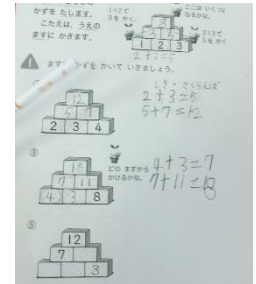 かずを たします。
こたえは、うえの
ますに かきます。
1+2で
3を かく。
ここは いくつに
なるかな。
3
3 5
1 2 3
2+3で
5を かく
2+3=5
1 ますに かずを かいて いきましょう。
しき・さくらんぼ
12
5 7
2 3 4
2+3=5
5+7=12
③
18
7 11
4 3 8
どの ますから
かけるかな。
4+3=7
7+11=18
⑤
12
7
3